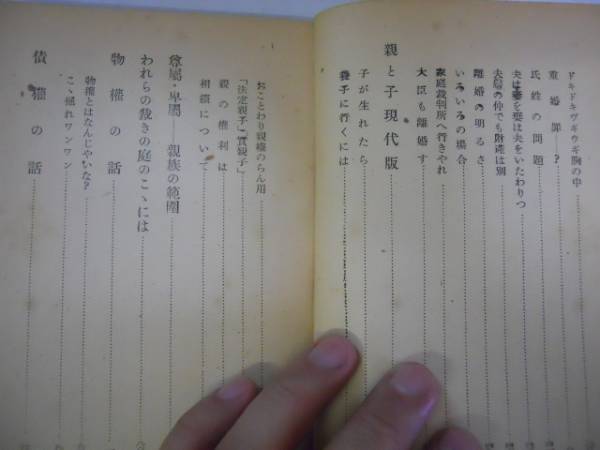 ドキドキヴギウギ胸の中
重婚罪――?
氏姓の問題
夫は妻を妻は夫をいたわりつ
夫婦の仲でも財産は別
離婚の明るさ
いろいろの場合
家庭裁判所へ行きやれ
大臣も離婚す
親と子現代版
子が生れたら
養子に行くには
おことわり親権のらん用
「決定親子」「實親子」
親の権利は
相續について
尊屬・卑屬――親族の範圍
われらの裁きの庭のこゝには
物權の話
物權とはなんじゃいな?
こゝ掘れワンワン
債權の話